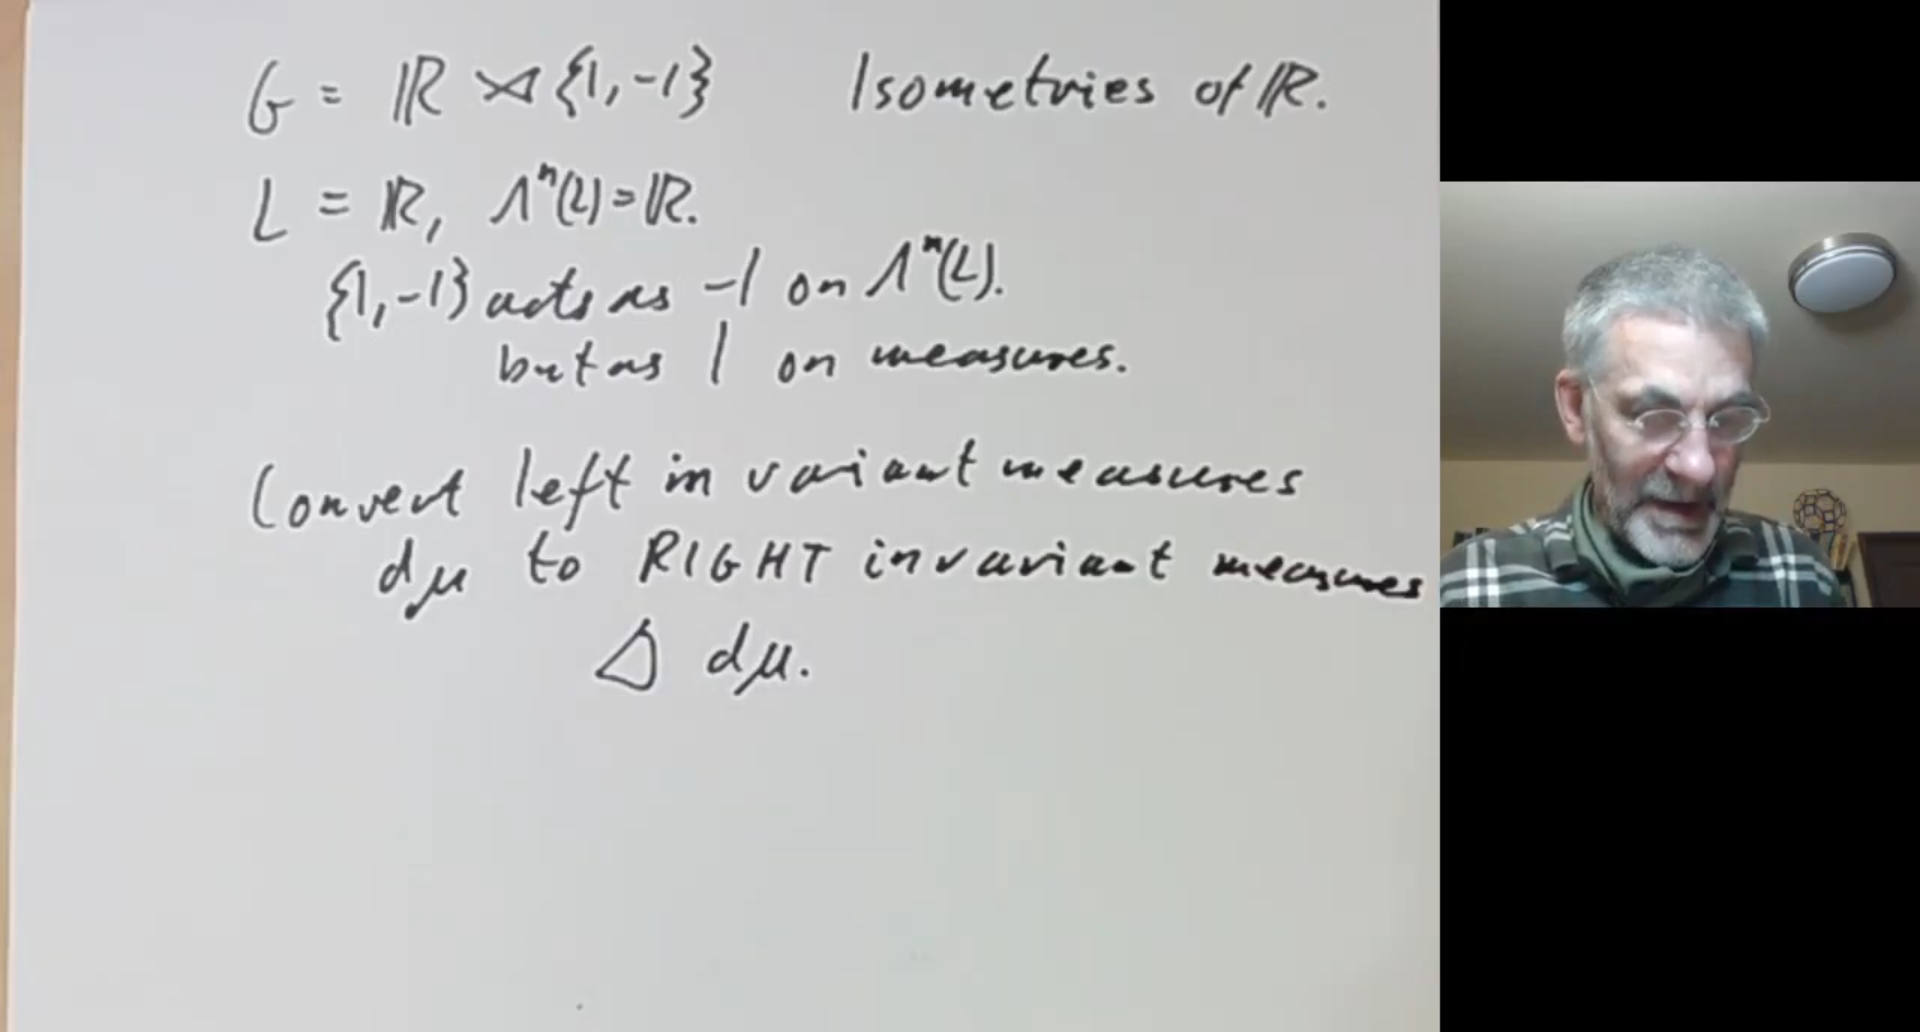 G = ℝ ⋊ {1,-1} Isometries of ℝ.
L = ℝ, Λⁿ(L)=ℝ.
{1,-1} acts as -1 on Λⁿ(L).
but as 1 on measures.
Convert left invariant measures
dμ to RIGHT invariant measures
Δ dμ.